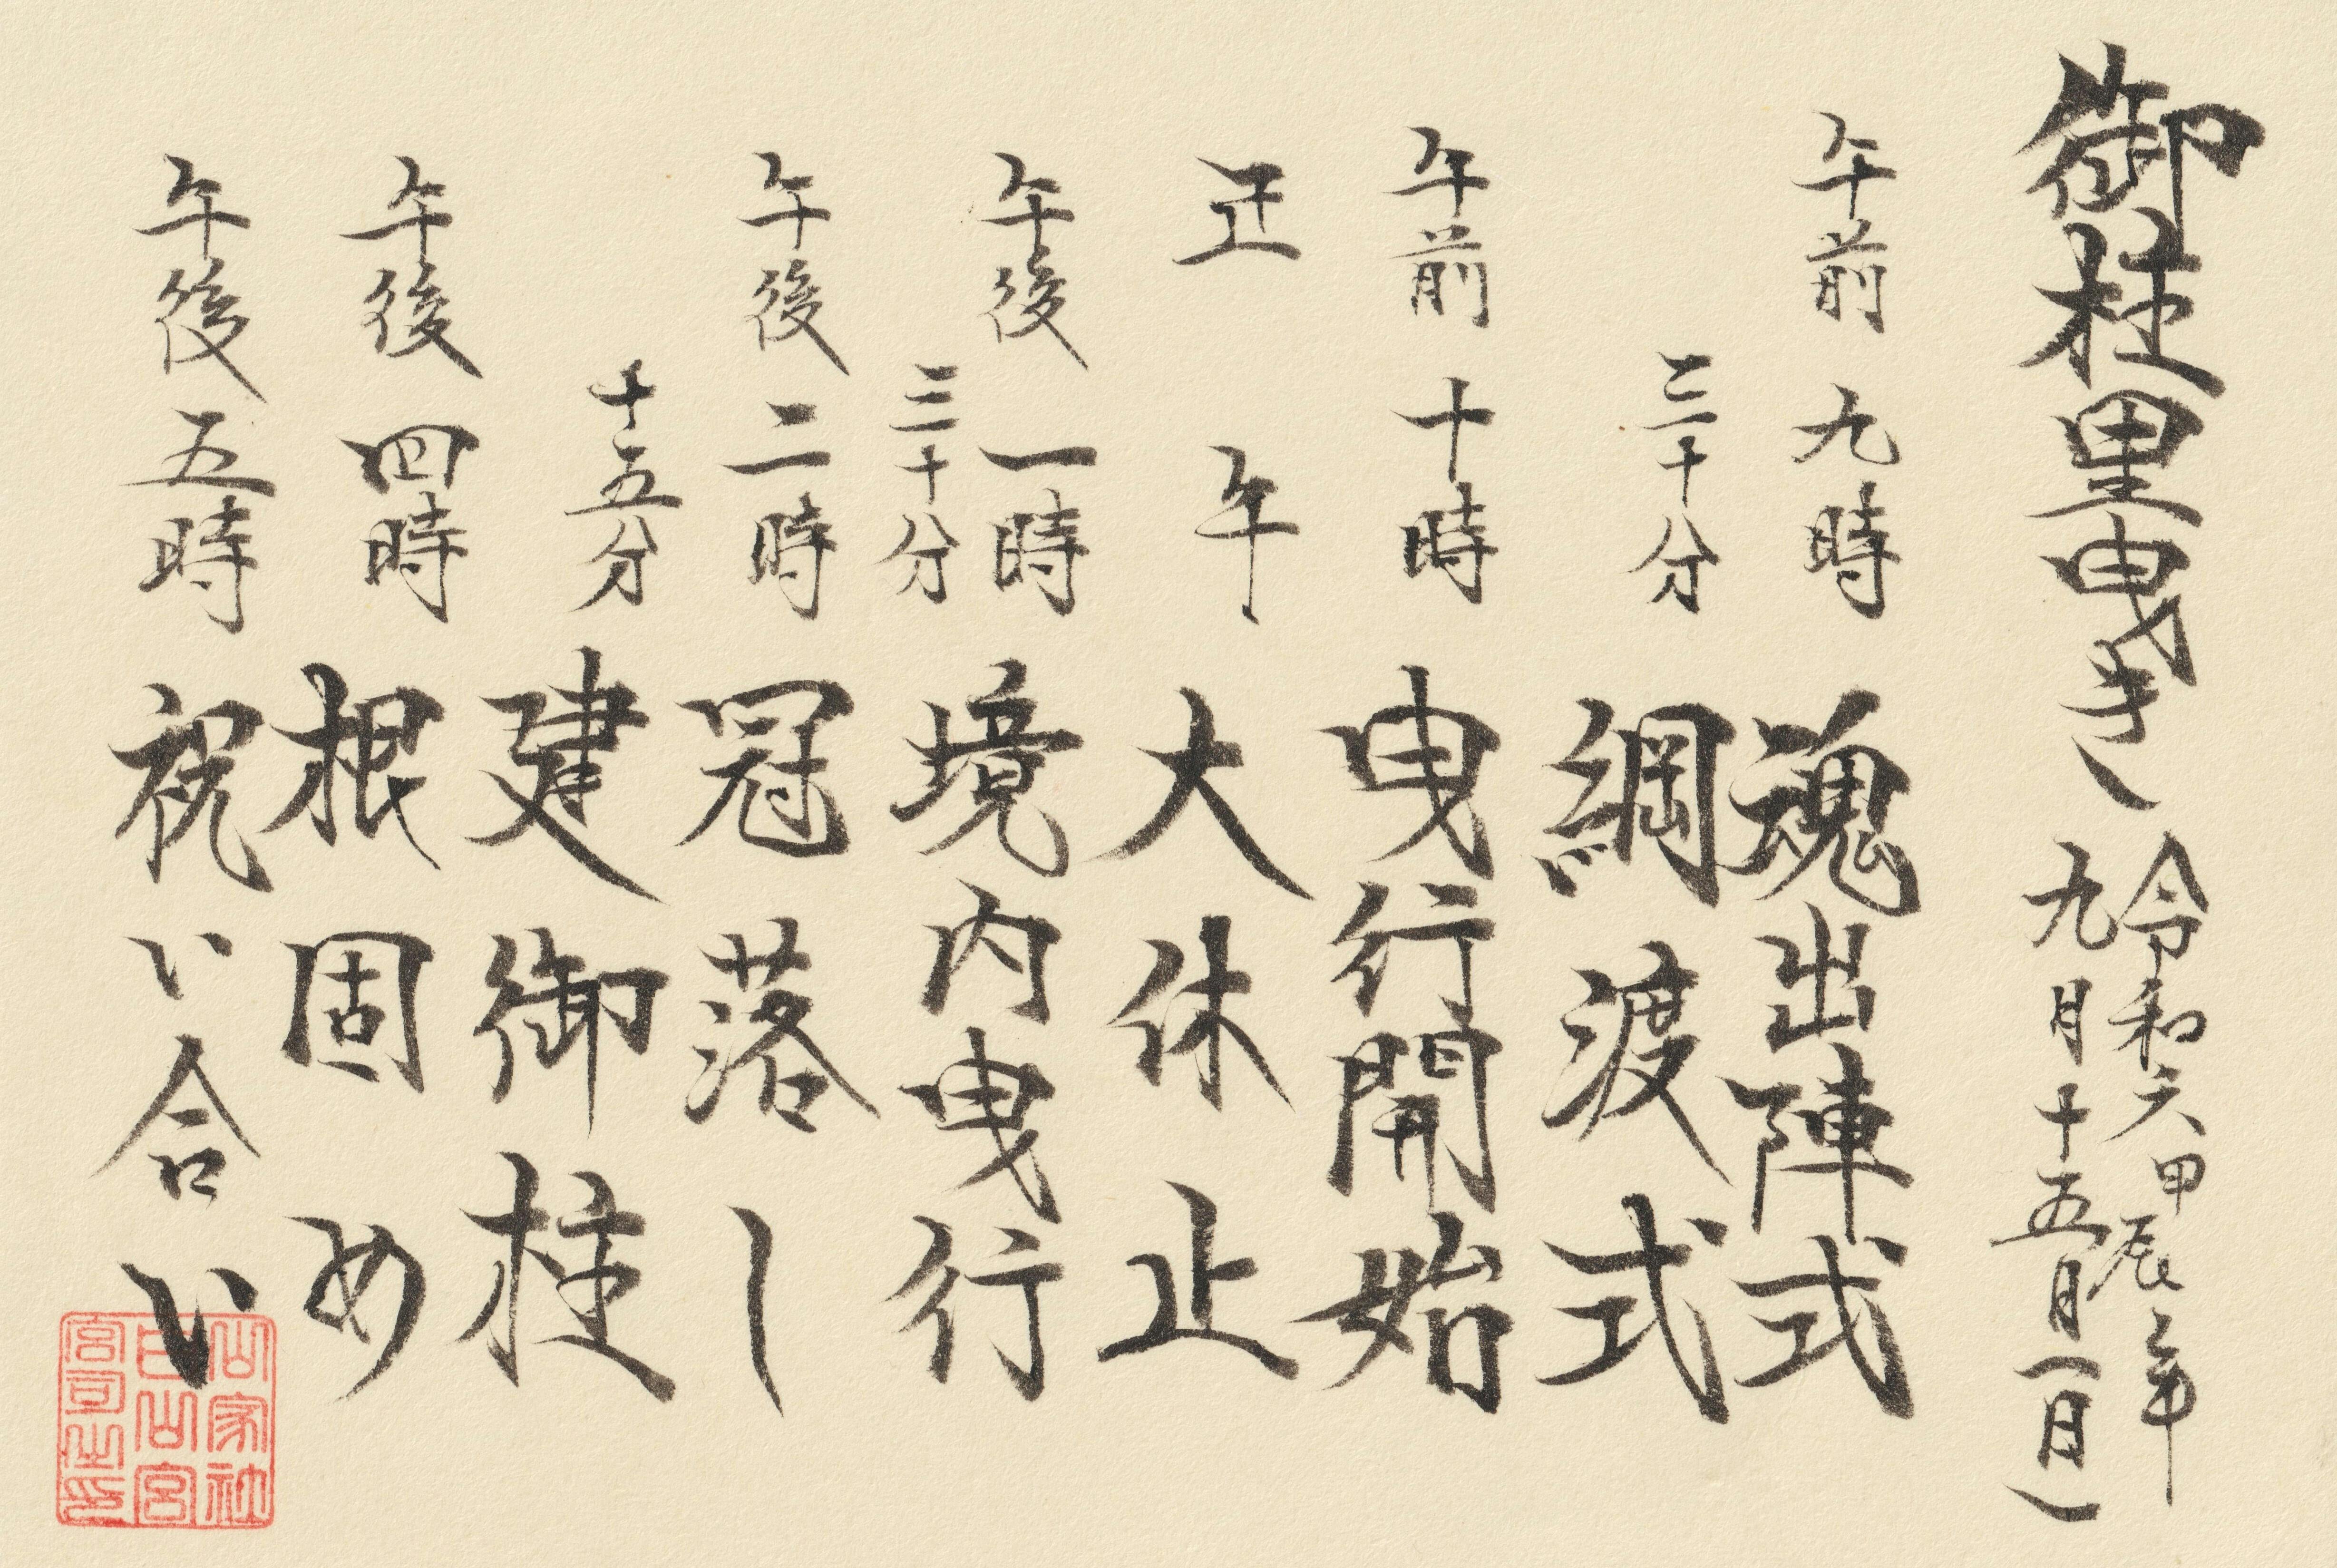 御柱里曳き
令和六甲辰年
九月十五日(日)
午前九時 魂出陣式
三十分 綱渡式
午前十時 曳行開始
正午 大休止
午後一時三十分 境内曳行
午後二時 冠落し
十五分 建御柱
午後四時 根固め
午後五時 祝い合い
山家社
白山宮
宮司之印